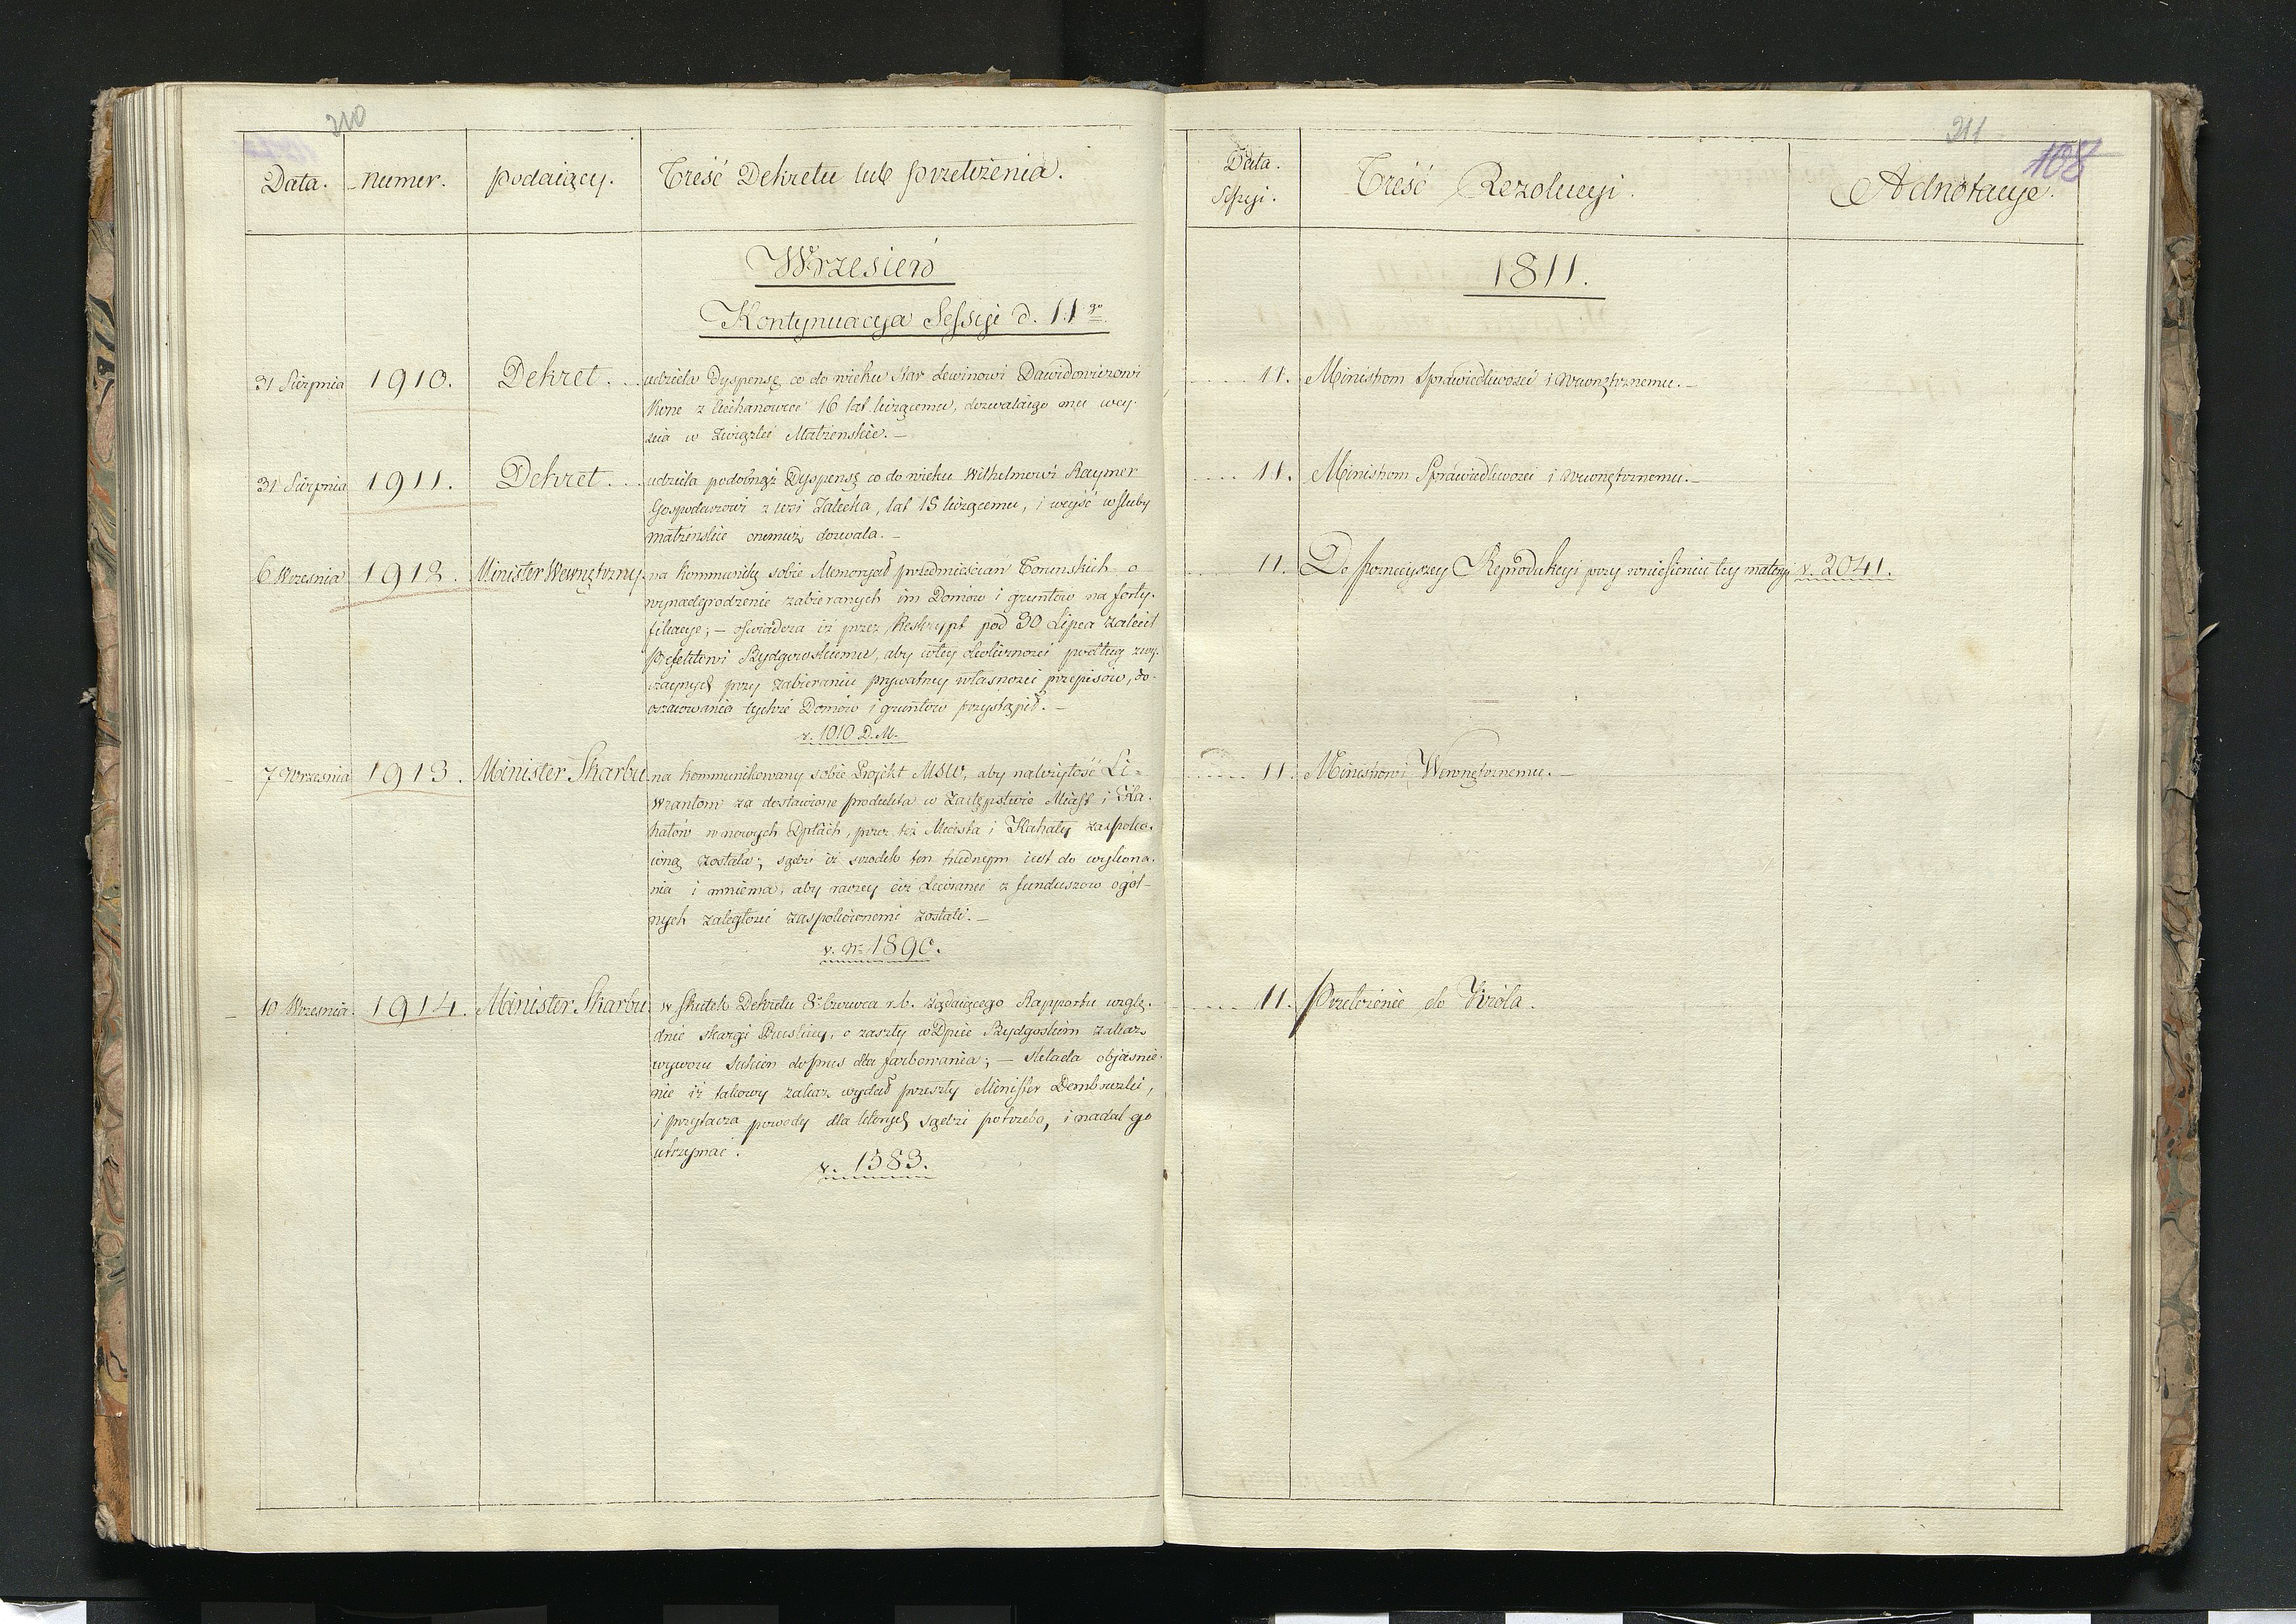 210
Data.
numer.
podaiący.
Treść Dekretu lub przełożenia.
Wrzesień
Kontynuacya Sessyi d. 11go
31 Sierpnia
1910.
Dekret.
udziela Dyspensę co do wieku Star Lewinowi Dawidowiczowi
Kone z Ciechanowce 16 lat liczącemu, dozwalaiąc mu wey-
scia w Związki Małżenskie. —
31 Sierpnia
1911.
Dekret.
udziela podobnąż Dyspensę co do wieku Wilhelmowi Raymer
Gospodarzowi z wsi Zalecka, lat 15 liczącemu, i weyść w śluby
małżenskie onemuż dozwala. —
6 Wrzesnia
1912.
Minister Wewnętrzny.
na kommunikę sobie Memoryał przedmieścian Torunskich o
wynadgrodzenie zabieranych im Domow i gruntow na forty-
fikacye; — oswiadcza iż przez Reskrypt pod 30 Lipca zalecił
Prefektowi Bydgoskiemu, aby wtey okoliczności podług zwy-
czaynych przy zabieraniu prywatney własności przepisow, do
oszacowania tychże Domow i gruntow przystąpił. —
v. 1010 D.M.
7 Wrzesnia
1913.
Minister Skarbu
na kommunikowany sobie Projekt MSW, aby należytość Li-
werantom za dostawione produkta w zastępstwie Miast i Ka-
hałow w nowych Dptach, przez też Miasta i Kahały zaspoko-
ioną została; sądzi iż srzodek ten trudnym iest do wykona-
nia i mniema, aby raczey ciż Liweranci z funduszow ogól-
nych zaległości zaspokoionemi zostali. —
v. Nr 1890.
10 Wrzesnia
1914.
Minister Skarbu
w skutek Dekretu 8 Czerwca r.b. żądaiącego Rapportu wzglę-
dnie skargi Pruskiey, o zaszły w Dpcie Bydgoskim zakaz
wywozu sukien do Prus dla farbowania; — składa objasnie-
nie iż takowy zakaz wydał przeszły Minister Dembowski,
i przytacza powody dla których sądzi potrzebo, i nadal go
utrzymać.
v. 1383.
211
108
Data.
Sessyi.
Treść Rezolucyi.
Adnotacye.
1811.
11.
Ministrom Sprawiedliwości i Wewnętrznemu. —
11.
Ministrom Sprawiedliwości i Wewnętrznemu. —
11.
Do poznieyszey Reprodukcyi przy wniesieniu tey materyi
v. 2041.
11.
Ministrowi Wewnętrznemu. —
11.
Przełożenie do Króla.